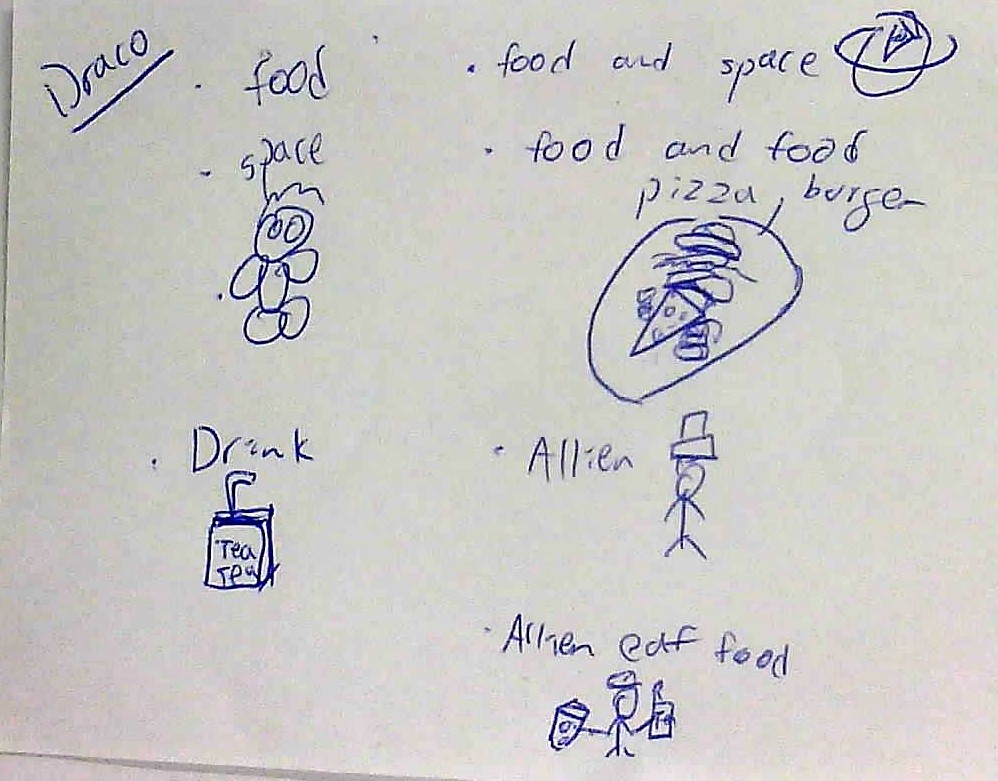 Draco
food
space
Drink
Tea
Tea
food and space
food and food
pizza, burger
Allien
Allien eat food